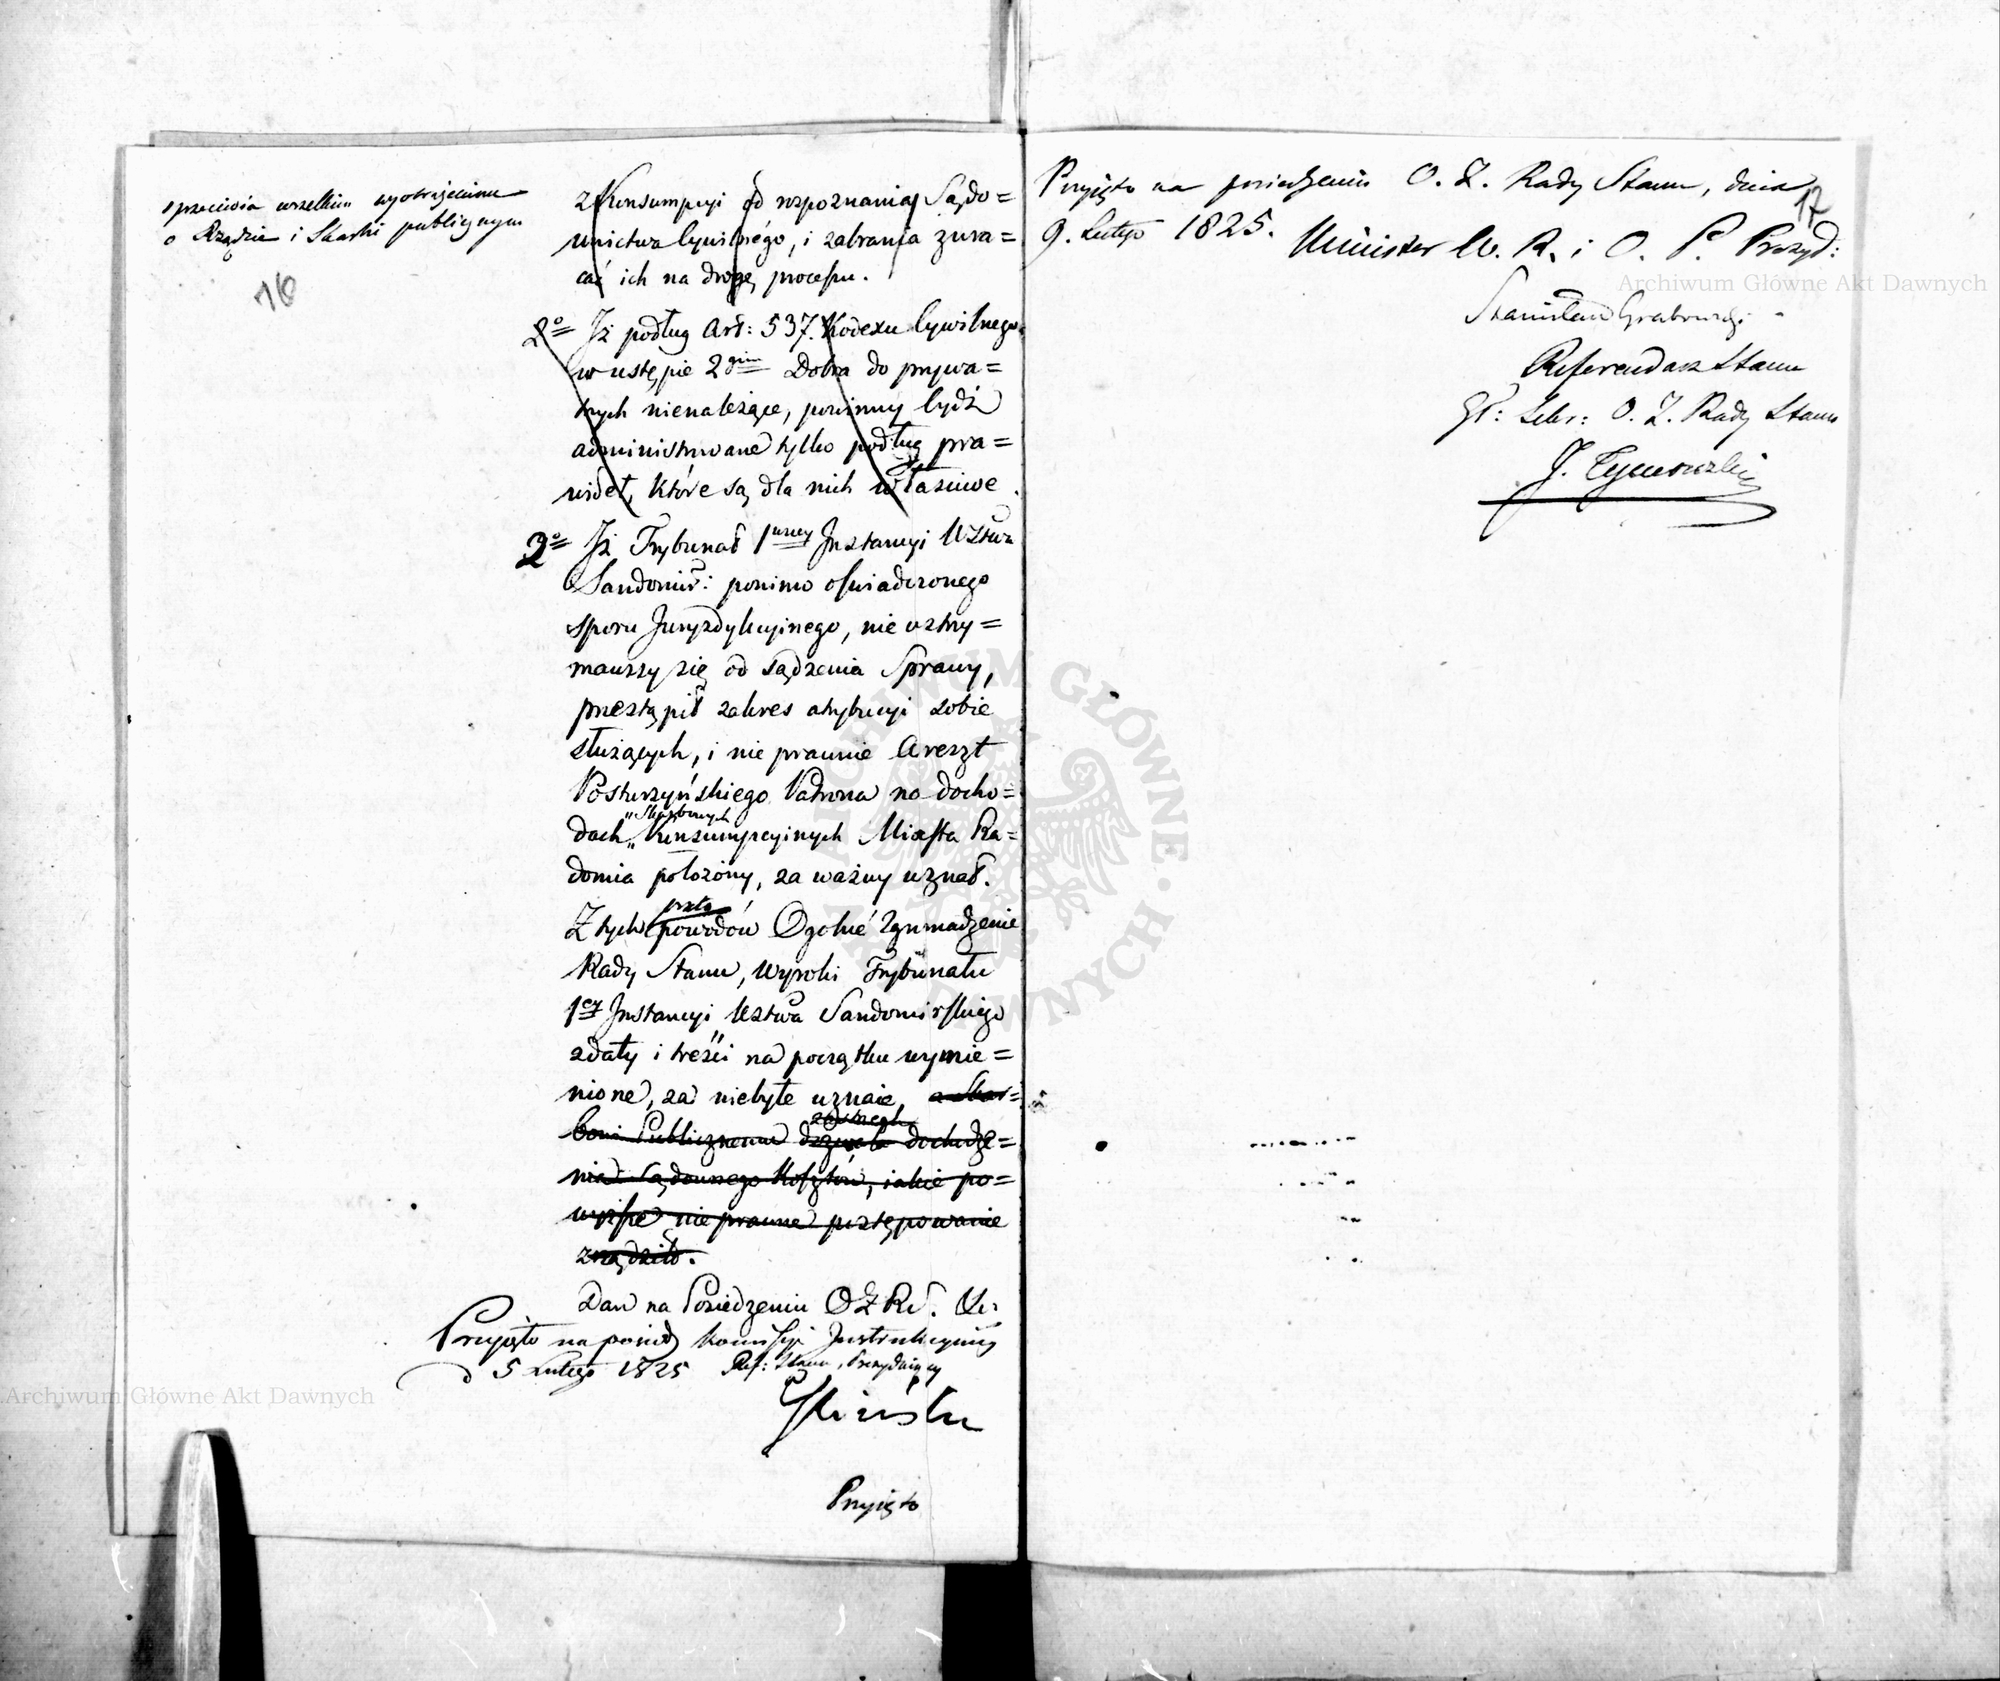 sprzeciwia wszelkim wyobrażeniom
o Rządzie i Skarbie publicznym
16
z Konsumpcyi od rozpoznania Sądo=
wnictwa Cywilnégo, i zabrania zwra=
cać ich na drogę processu.
2o Iż podług Art: 537. Kodexu Cywilnego
w ustępie 2gim Dobra do prywa=
tnych nienależące, powinny bydź
administrowane tylko podług pra=
wideł, które są dla nich właściwe.
2o Iż Trybunał 1wszey Instancyi Wdztwa
Sandomir: pomimo oświadczonego
sporu Juryzdykcyinego, nie wstrzy=
mawszy się od sądzenia Sprawy,
przestąpił zakres atrybucyi sobie
służących, i nie prawnie Areszt
Patrona na docho=
„Skarbowych
dach „Konsumpcyinych Miasta Ra=
domia położony, za ważny uznał.
Z tych powodów Ogolné Zgromadzenie
Rady Stanu, Wyroki Trybunału
1ey Instancyi Wdztwa Sandomirskiego
z daty i treści na początku wymie=
nione, za niebyłe uznaie, a Skar=
bowi Publicznemu dochodze=
nia Sądownego Kosztów, iakie po=
wyższe nie prawne postępowanie
zrządziło.
Dan na Posiedzeniu O Z R S.
Przyięto na posied Kommissyi Instrukcyiney
d 5 Lutego 1825 Ref: Stanu, Prezyduiący
Przyięto
Przyięto na posiedzeniu O. Z. Rady Stanu, dnia
17
9. Lutego 1825. Minister W. R. i O. P. Prezyd:
Stanisław Grabowski
Referendarz Stanu
Sekr: O. Z. Rady Stanu
J. Tymowski
Archiwum Główne Akt Dawnych
Archiwum Główne Akt Dawnych
ARCHIWUM GŁÓWNE AKT DAWNYCH